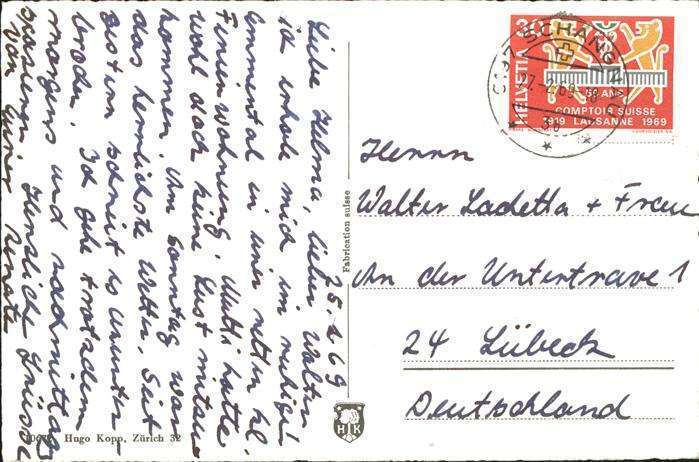 25.2.69
Liebe Helma, lieber Walter
ich erhole mich im ruhigen
Emmental in einer netten kl.
Ferienwohnung. Mutti hatte
wohl doch keine Lust mitzu-
kommen. Am Sonntag war
das herrlichste Wetter. Seit
gestern schneit es ununter-
brochen. Ich gehe trotzdem
morgens und nachmittags
spazieren. Herzliche Grüsse
von Eurer Renate
Herrn
Walter Ladetta + Frau
An der Untertrave 1
24 Lübeck
Deutschland
Fabrication suisse
Hugo Kopp, Zürich 32
H K
30
HELVETIA
50 ANS
COMPTOIR SUISSE
1919 LAUSANNE 1969
SCHANGNAU